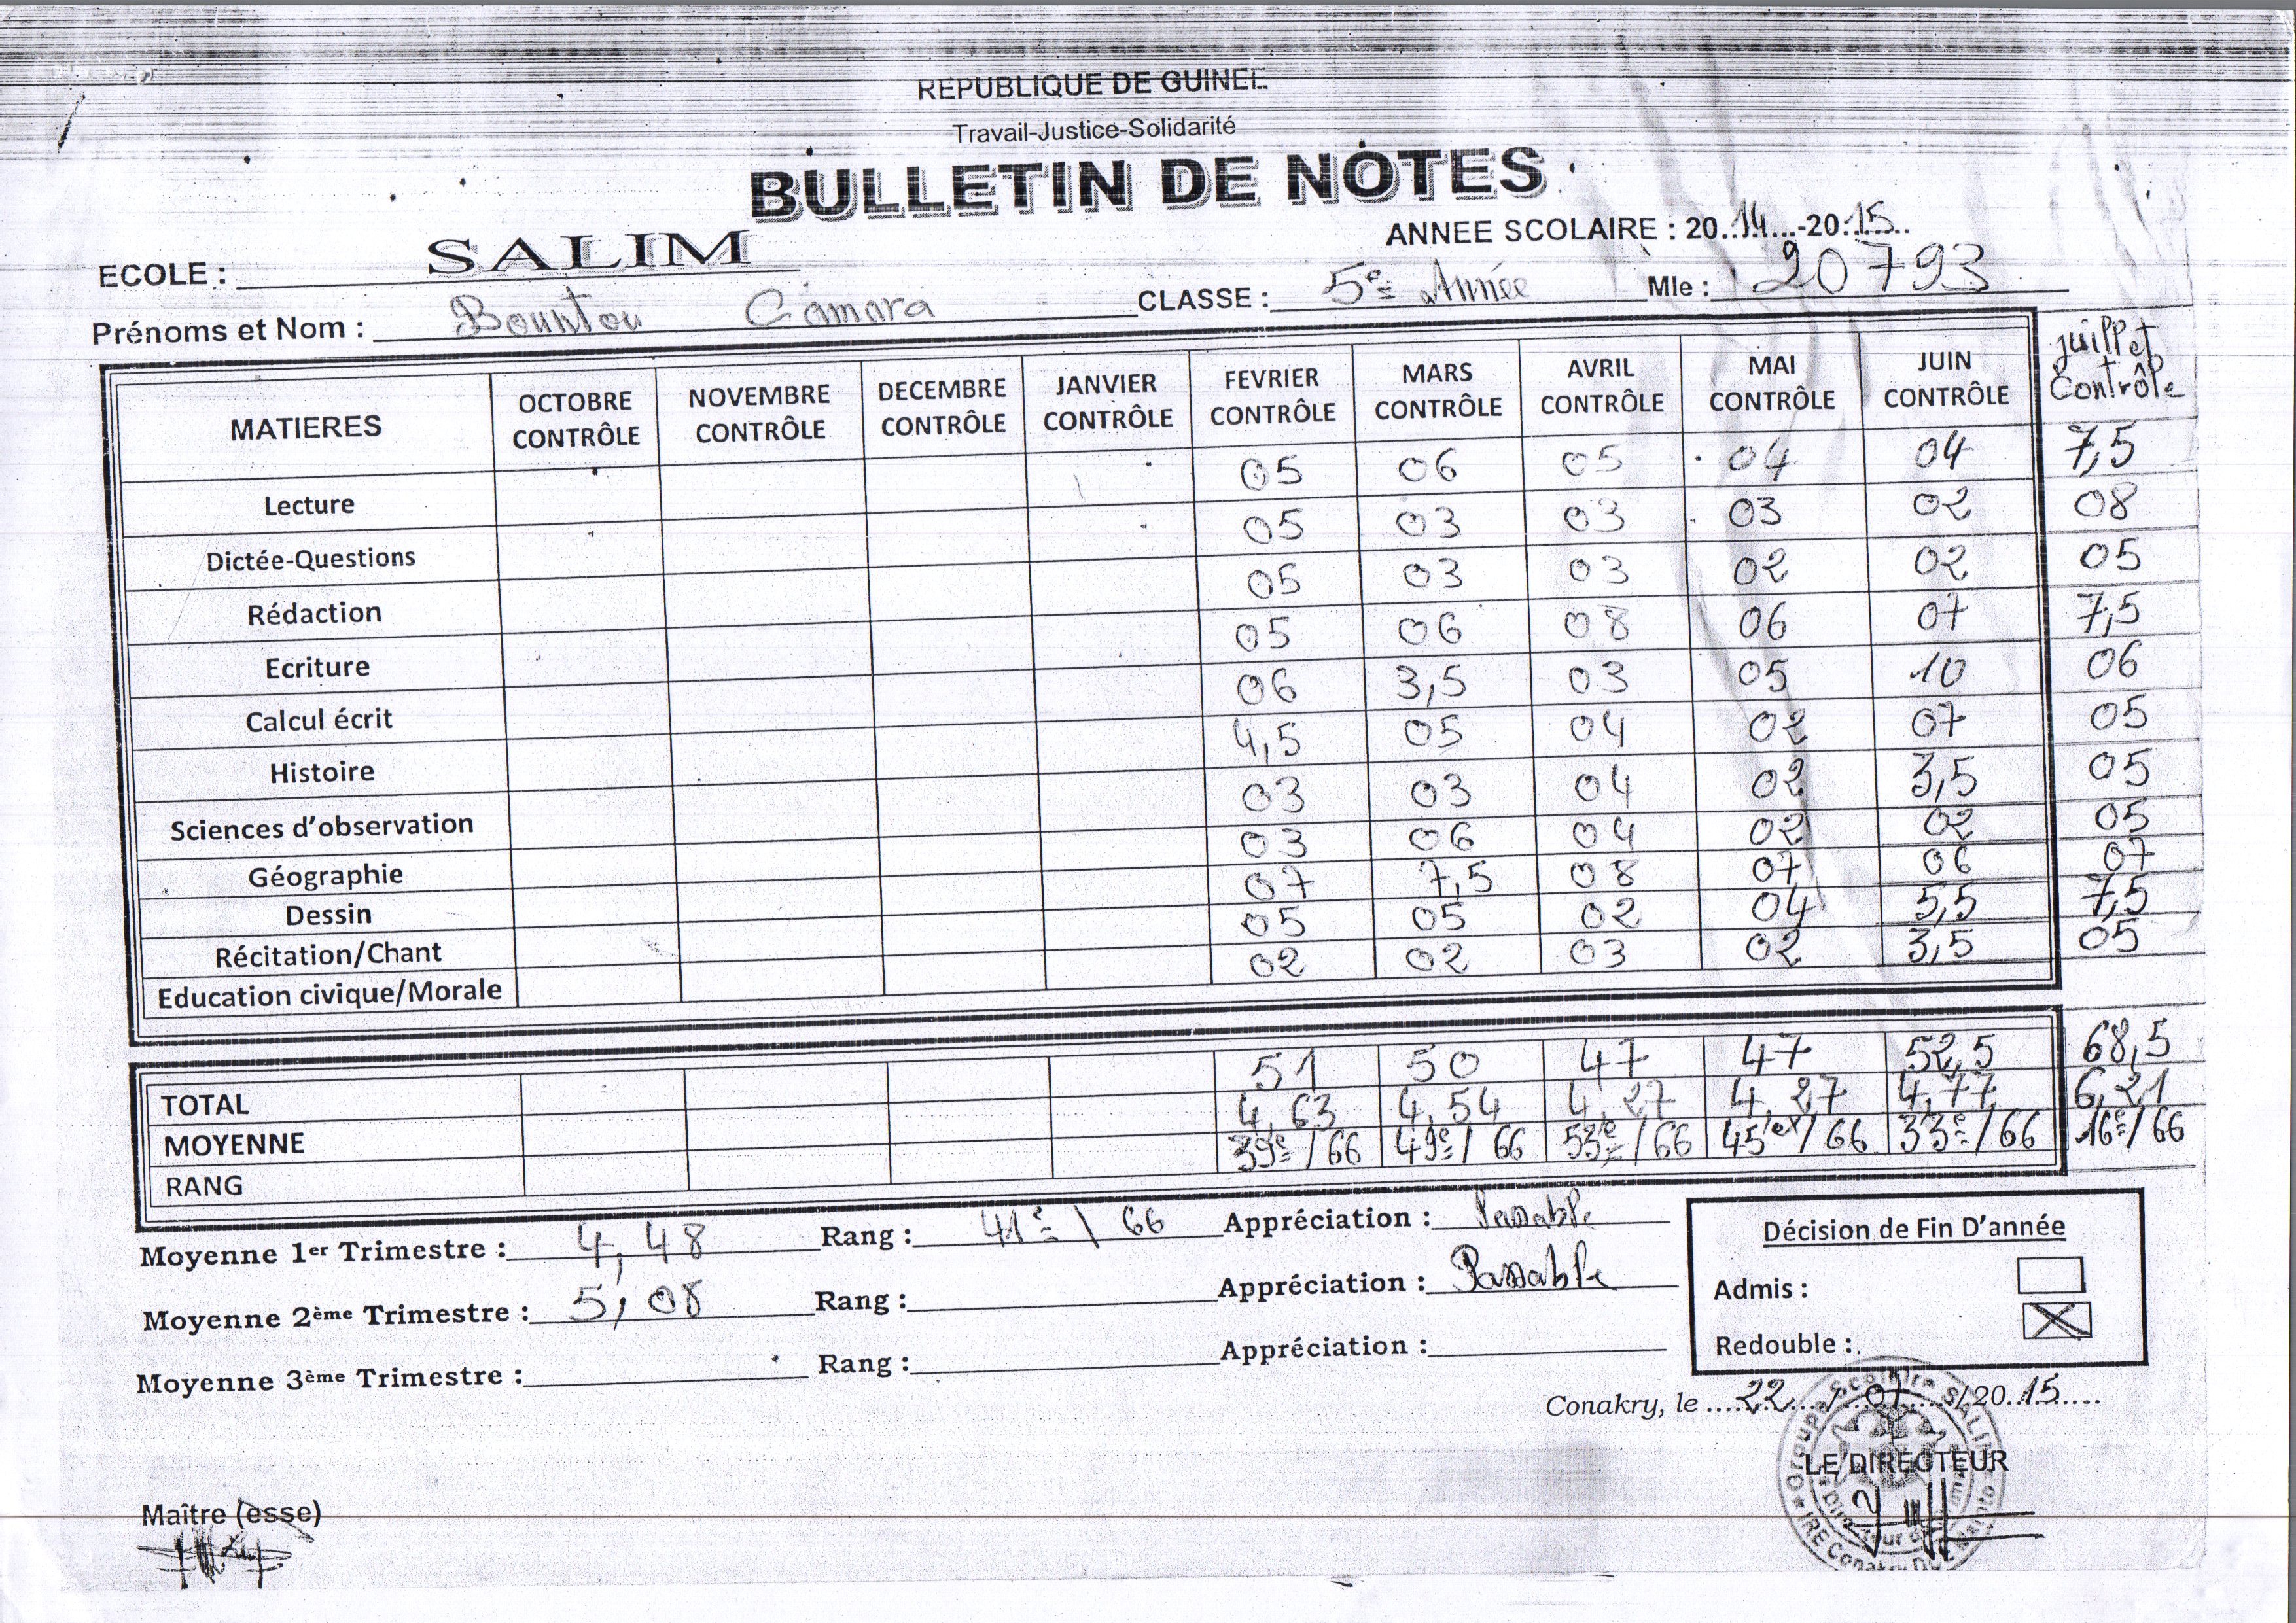 REPUBLIQUE DE GUINEE
Travail-Justice-Solidarité
BULLETIN DE NOTES
ANNEE SCOLAIRE : 20..14...-20.15..
ECOLE : SALIM
Prénoms et Nom : Bountou Camara CLASSE : 5e Année Mle : 20793
MATIERES OCTOBRE CONTRÔLE NOVEMBRE CONTRÔLE DECEMBRE CONTRÔLE JANVIER CONTRÔLE FEVRIER CONTRÔLE MARS CONTRÔLE AVRIL CONTRÔLE MAI CONTRÔLE JUIN CONTRÔLE juillet Contrôle
Lecture 05 06 05 04 04 7,5
Dictée-Questions 05 03 03 03 02 08
Rédaction 05 03 03 02 02 05
Ecriture 05 06 08 06 07 7,5
Calcul écrit 06 3,5 03 05 10 06
Histoire 4,5 05 04 02 07 05
Sciences d'observation 03 03 04 02 3,5 05
Géographie 03 06 04 02 02 05
Dessin 07 7,5 08 07 06 07
Récitation/Chant 05 05 02 04 5,5 7,5
Education civique/Morale 02 02 03 02 3,5 05
TOTAL 51 50 47 47 52,5 68,5
MOYENNE 4,63 4,54 4,27 4,27 4,77 6,21
RANG 39e/66 49e/66 53e/66 45ex/66 33e/66 16e/66
Moyenne 1er Trimestre : 4,48 Rang : 41e\66 Appréciation : Passable
Moyenne 2ème Trimestre : 5,08 Rang : Appréciation : Passable
Moyenne 3ème Trimestre : Rang : Appréciation :
Décision de Fin D'année
Admis :
Redouble :
Conakry, le ..22../..07../20.15....
LE DIRECTEUR
Groupe Scolaire SALIM
IRE Conakry
Maître (esse)